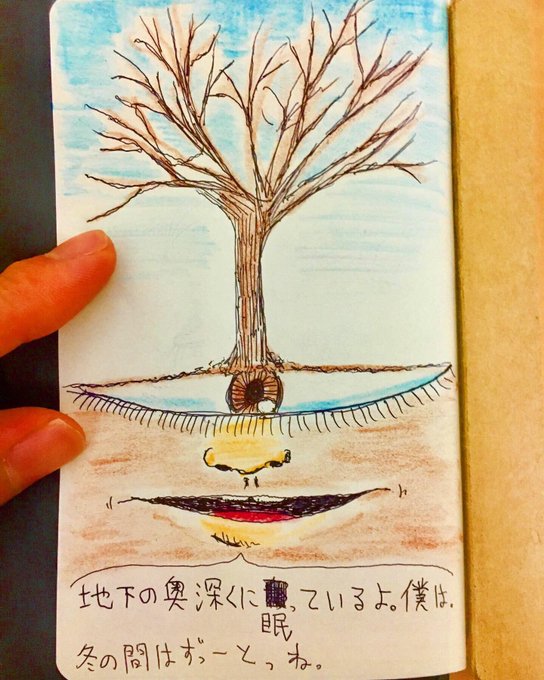 地下の奥深くに眠っているよ。僕は、
冬の間はずっーとっね。